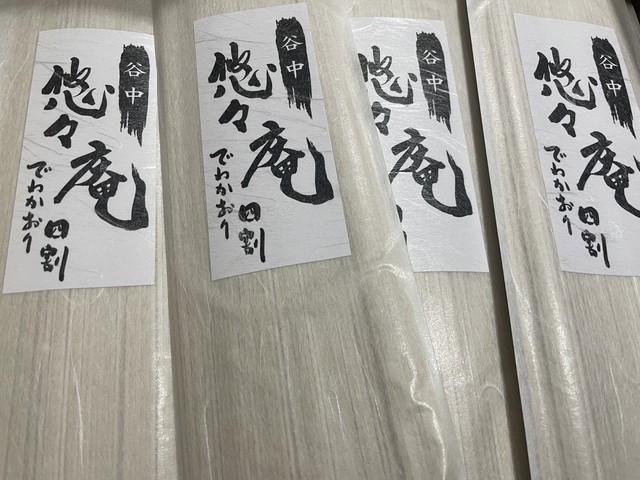 谷中
悠々庵
でわかおり
四割
谷中
悠々庵
でわかおり
四割
谷中
悠々庵
谷中
悠々庵
でわかおり
四割